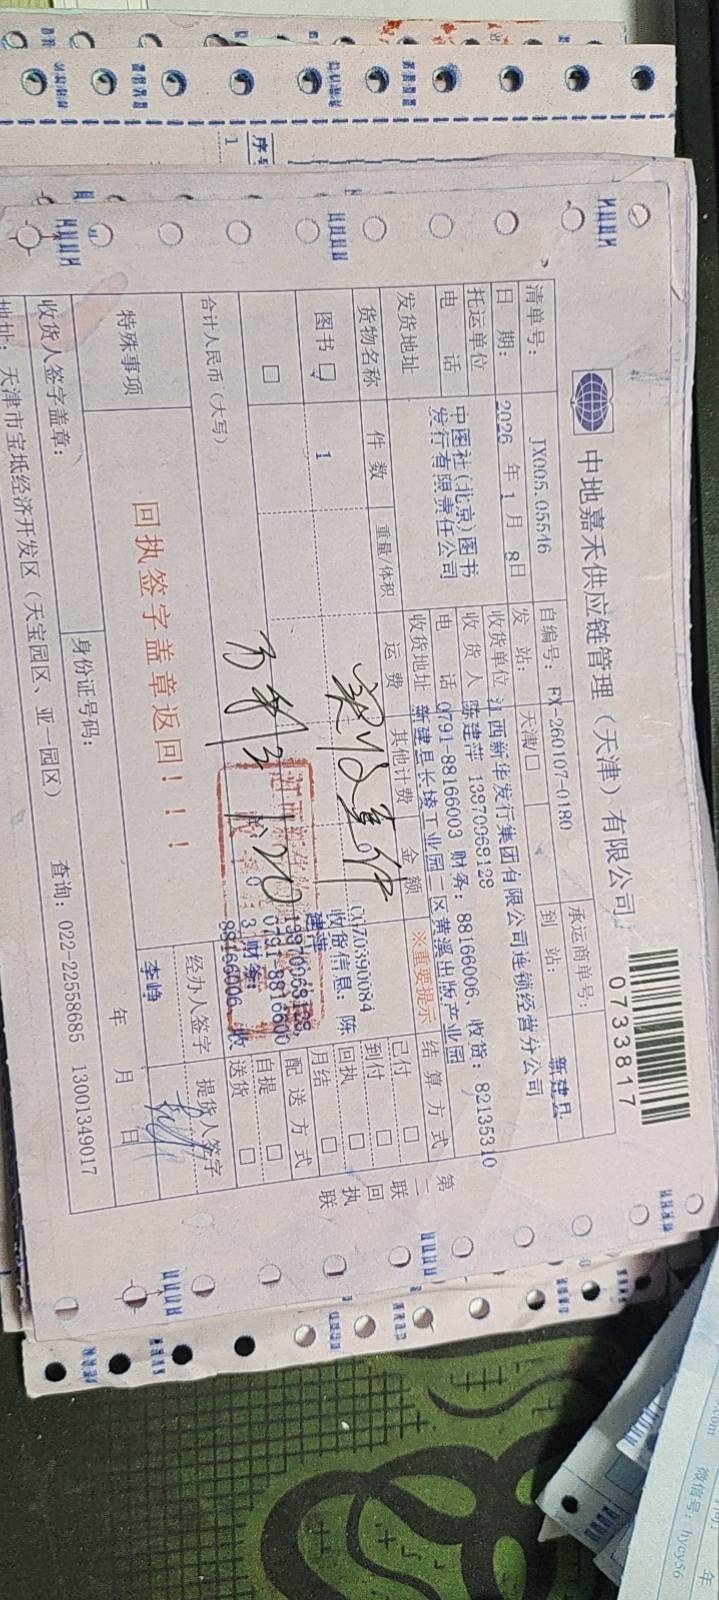 中地嘉禾供应链管理（天津）有限公司
0733817
清单号：
JX005.05546
自编号：FX-260107-0180
承运商单号：
日 期：
2026 年 1 月 8日
发 站：
天津/☐
到 站：
新建县
托运单位
中图社(北京)图书
发行有限责任公司
电 话
收货单位
江西新华发行集团有限公司连锁经营分公司
收 货 人
陈建萍 13970968128
电 话
0791-88166003 财务：88166006，收货：82135310
发货地址
收货地址
新建县长堎工业园二区黄溪出版产业园
货物名称
件 数
重量/体积
运 费
其他计费
金 额
※重要提示
结 算 方 式
图书
1
收货信息：陈
建萍
13970968128，
0791-8816600
3，财务：
88166006，收
已付 ☐
到付 ☐
回执 ☐
月结 ☐
配 送 方 式
自提 ☐
送货 ☐
合计人民币（大写）
1.20
特殊事项
回执签字盖章返回！！！
经办人签字
提货人签字
李峥
收货人签字盖章：
身份证号码：
年 月 日
地址：天津市宝坻经济开发区（天宝园区、亚一园区）
查询：022-22558685 13001349017
第二联 回执联
序号
1
微信号：hycy56
.com
年